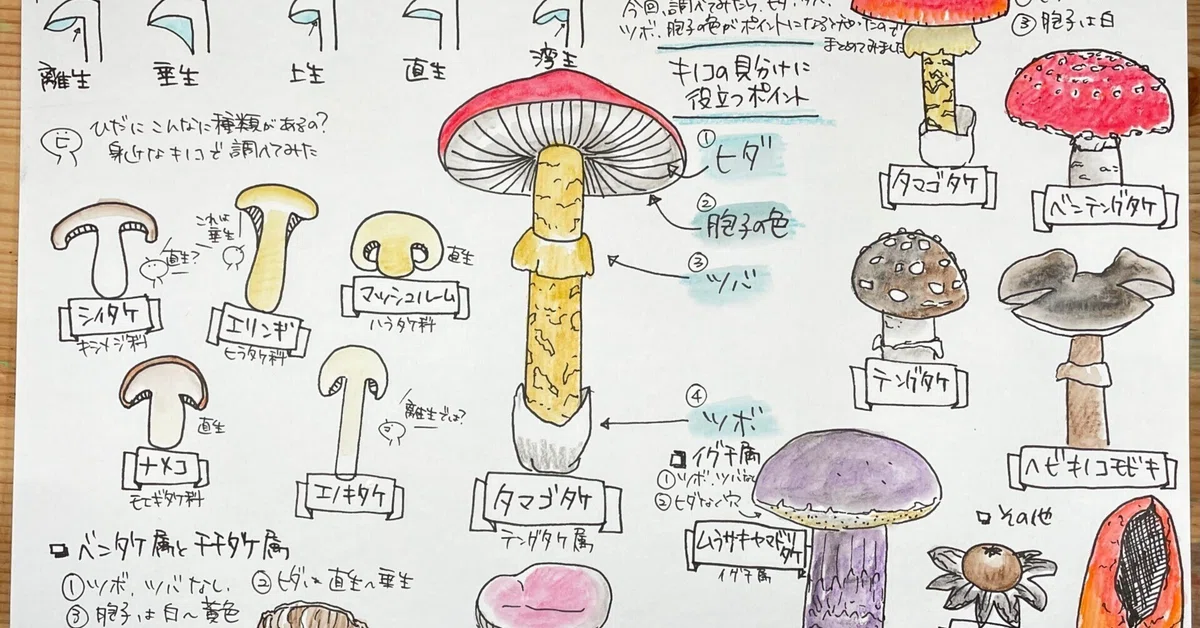 離生
垂生
上生
直生
湾生
今回、調べてみたら、ヒダ、ツバ、
ツボ、胞子の色がポイントになると分かったので
まとめてみました
キノコの見分けに
役立つポイント
① ヒダ
② 胞子の色
③ ツバ
④ ツボ
③ 胞子は白
ひだにこんなに種類があるの?
身近なキノコで調べてみた
シイタケ
キシメジ科
直生?
これは
垂生
エリンギ
ヒラタケ科
マッシュルーム
ハラタケ科
直生
ナメコ
モエギタケ科
直生
エノキタケ
離生では?
タマゴタケ
テングタケ属
タマゴタケ
ベニテングタケ
テングタケ
ヘビキノコモドキ
イグチ属
① ツボ、ツバなし
② ヒダなく穴
ムラサキヤマドリタケ
イグチ属
その他
ベニタケ属とチチタケ属
① ツボ、ツバなし、 ② ヒダは直生〜垂生
③ 胞子は白〜黄色